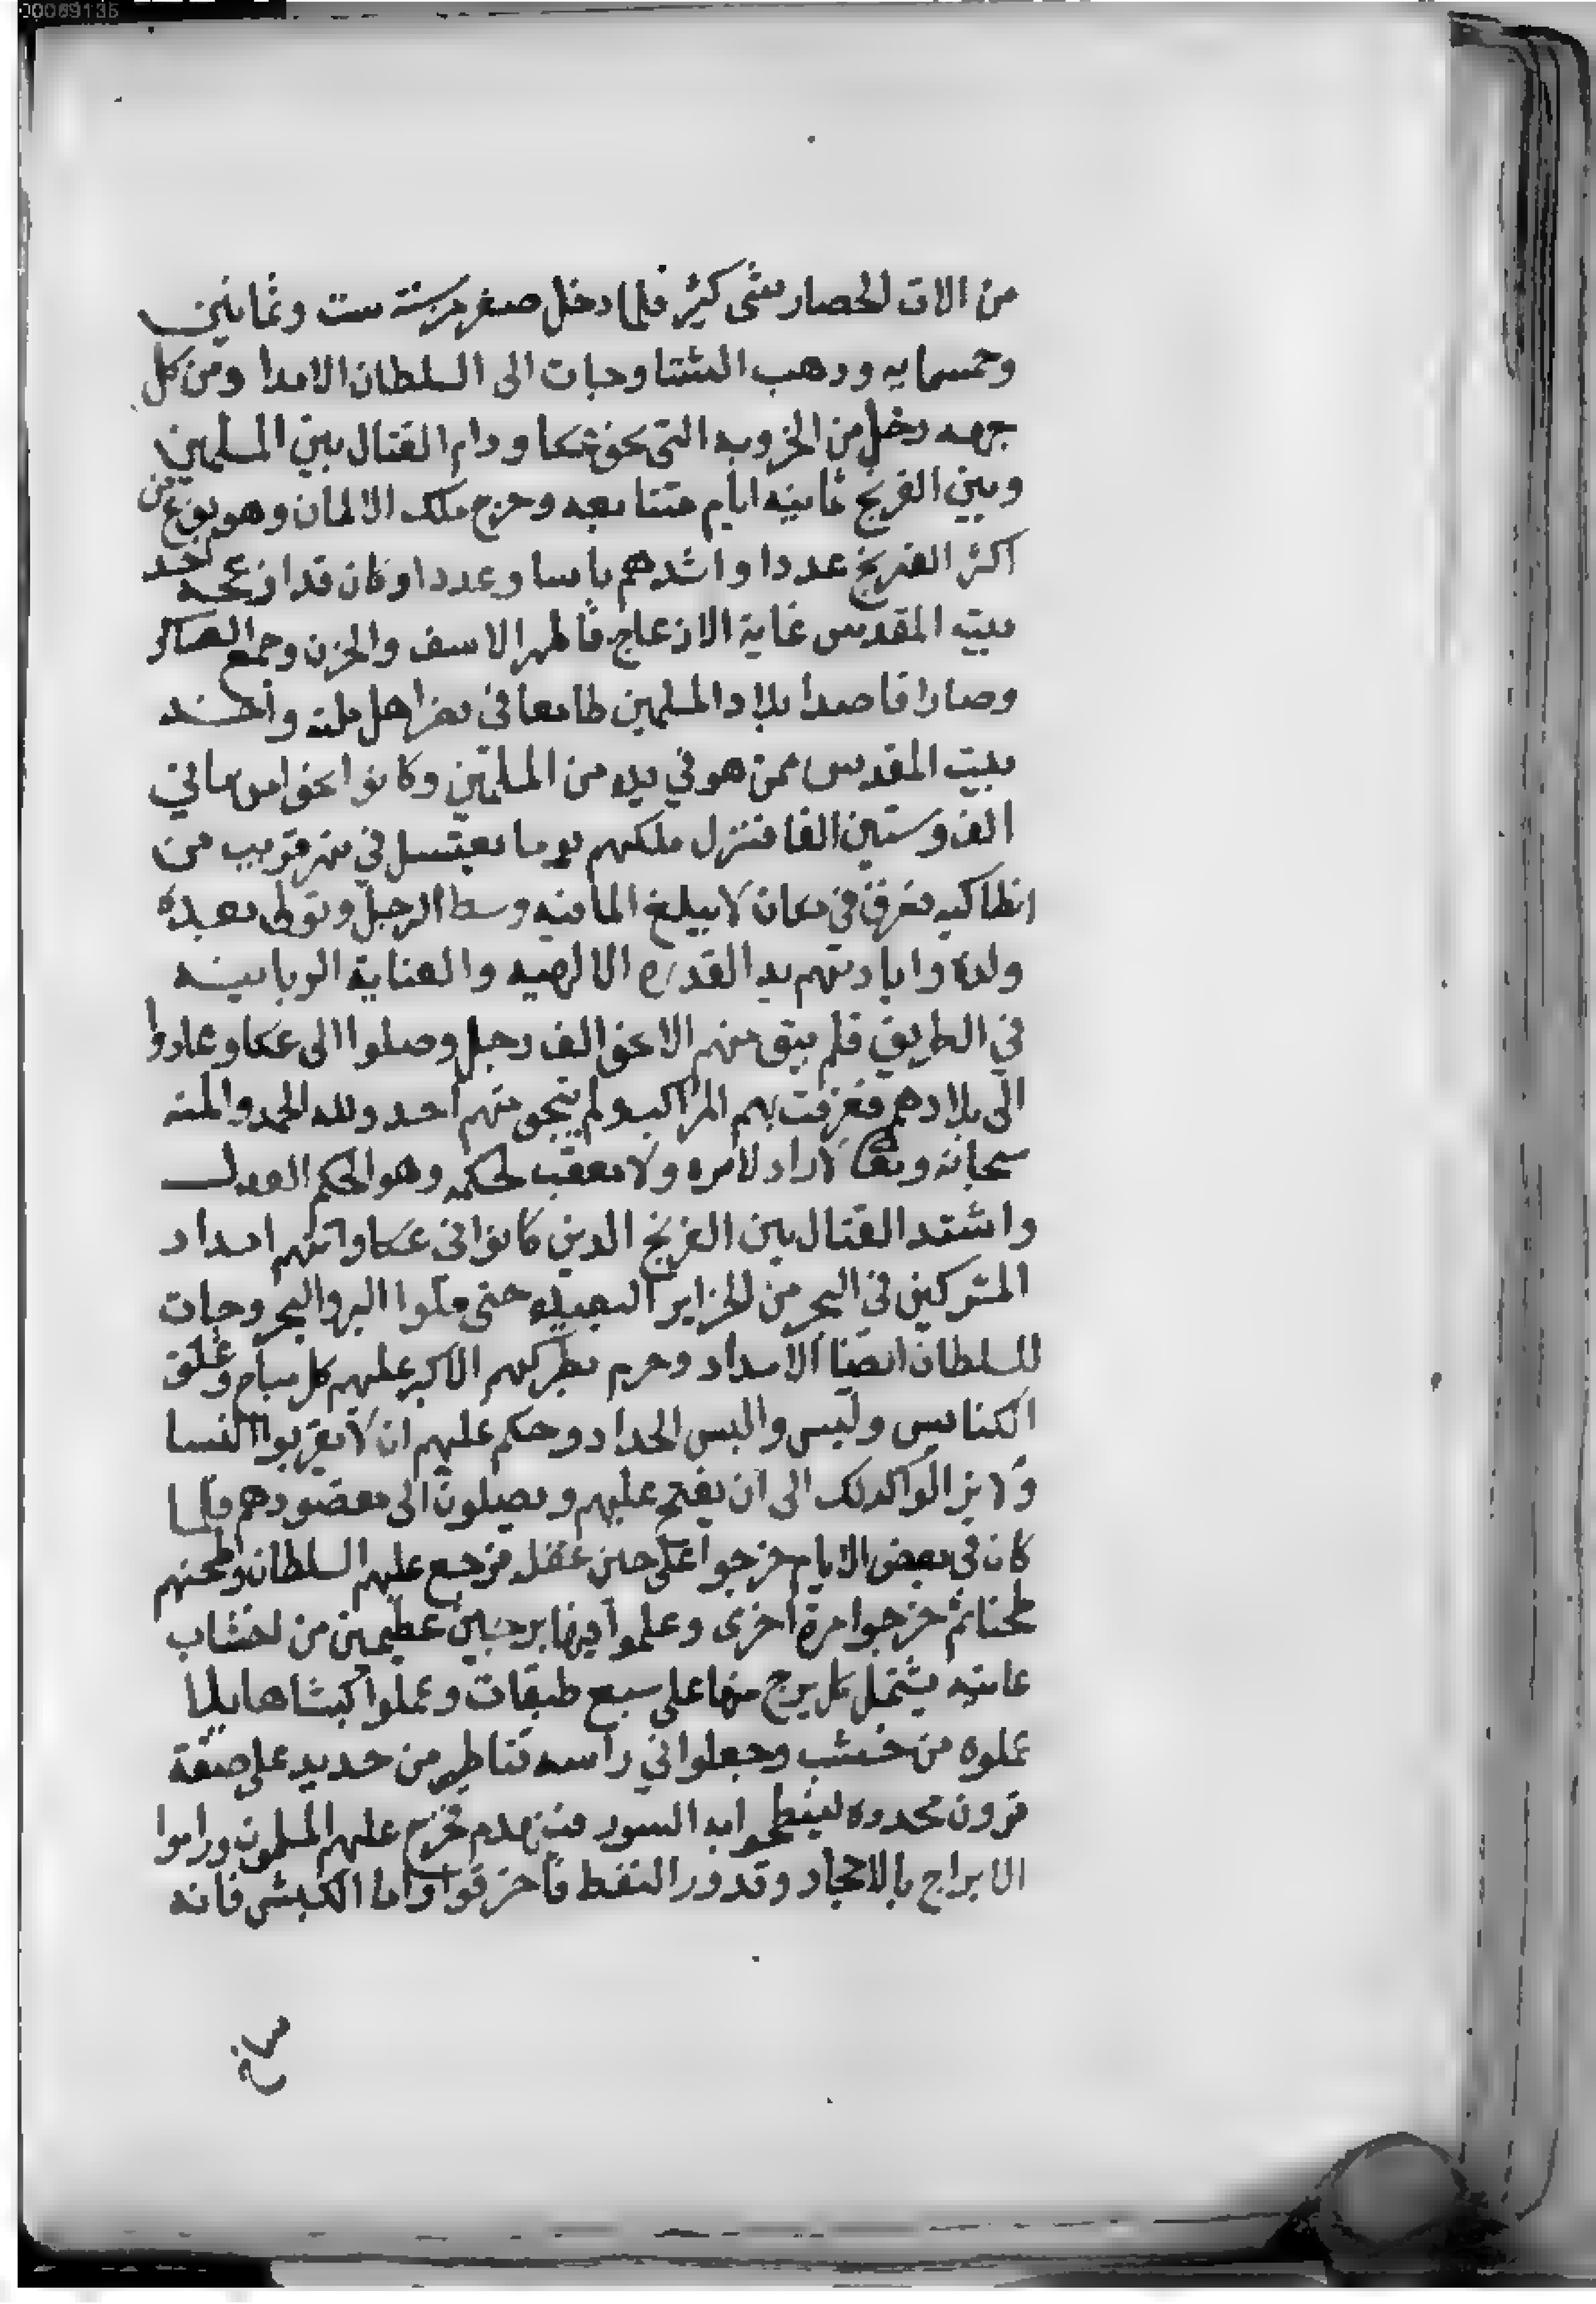 00069135
من الات الحصار شى كثير فلما دخل صفر من سنة ست وثمانين
وخمسمايه وذهب الشتا وجات الى السلطان الامدا ومن كل
جهه دخل من الخروبه التى نحو عكا ودام القتال بين المسلمين
وبين الفرنج ثمانيه ايام متتابعه وخرج ملك الالمان وهو نوع من
اكثر الفرنج عددا واشدهم باسا وعددا وكان قد ازعجه اخذ
بيت المقدس غاية الازعاج فاظهر الاسف والحزن وجمع العساكر
وصار قاصدا بلاد المسلمين طامعا فى نصر اهل ملته واخذ
بيت المقدس ممن هو في يده من المسلمين وكانوا نحوا من ماتي
الف وستين الفا فنزل ملكهم يوما يغتسل في نهر قريب من
انطاكيه فغرق في مكان لا يبلغ الما فيه وسط الرجل وتولى بعده
ولده وابادتهم يد القدره الالهيه والعناية الربانيه
في الطريق فلم يبق منهم الا نحو الف رجل وصلوا الى عكا وعادوا
الى بلادهم فغرقت بهم المراكب ولم ينجو منهم احد ولله الحمد والمنه
سبحانه وتعالى لا راد لامره ولا معقب لحكمه وهو الحكم العدل
واشتد القتال بين الفرنج الدين كانوا في عكا واتتهم امداد
المشركين في البحر من الجزاير البعيده حتى ملوا البر والبحر وجات
للسلطان ايضا الامداد وحرم بطركهم الاكبر عليهم كل مباح وغلق
الكنايس ولبس والبس الحداد وحكم عليهم ان لا يقربوا النسا
ولا يزالوا كدلك الى ان يفتح عليهم ويصلون الى مقصودهم فلما
كان في بعض الايام خرجوا على حين غفله فرجع عليهم السلطان وطحنهم
طحنا ثم خرجوا مرة اخرى وعملوا فيها برجين عظيمين من اخشاب
عاتيه يشتمل كل برج منها على سبع طبقات وعملوا كبشا هايلا
عملوه من خشب وجعلوا في راسه قناطير من حديد على صفة
قرون محدوده لينطحوا به السور فينهدم فخرج عليهم المسلمون ورموا
الابراج بالاحجار وقدور النفط فاحرقوا واما الكبش فانه
ساخ